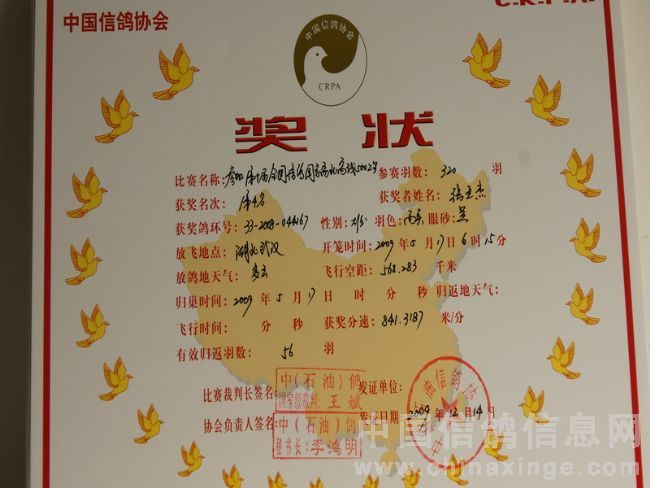 中国信鸽协会
C.R.P.A.
中国信鸽协会
CRPA
奖 状
比赛名称: 参赛羽数: 320 羽
获奖名次: 获奖者姓名:
获奖鸽环号: 33-2008-044167 性别: 羽色: 眼砂:
放飞地点: 湖北武汉 开笼时间: 2009 年 5 月 17 日 6 时 15 分
放鸽地天气: 多云 飞行空距: 568.283 千米
归巢时间: 2009 年 5 月 17 日 时 分 秒 归返地天气:
飞行时间: 分 秒 获奖分速: 841.3187 米/分
有效归返羽数: 56 羽
比赛裁判长签名: 中(石油)鸽 国家级裁判: 王斌 发证单位:
协会负责人签名: 中(石油)鸽 秘书长: 李鸿明 发证日期 2009 年 12 月 14 日
中国信鸽信息网
www.chinaxinge.com